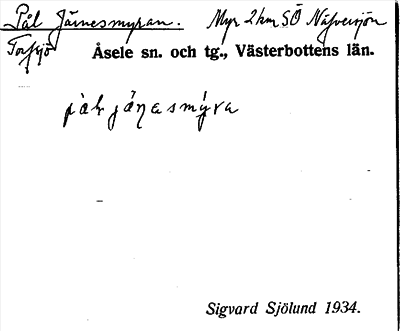 Pål Järnesmyran. Myr 2 km SÖ Näsversjön
Torvsjö Åsele sn. och tg., Västerbottens län.
pàl jâŋasmýra
Sigvard Sjölund 1934.